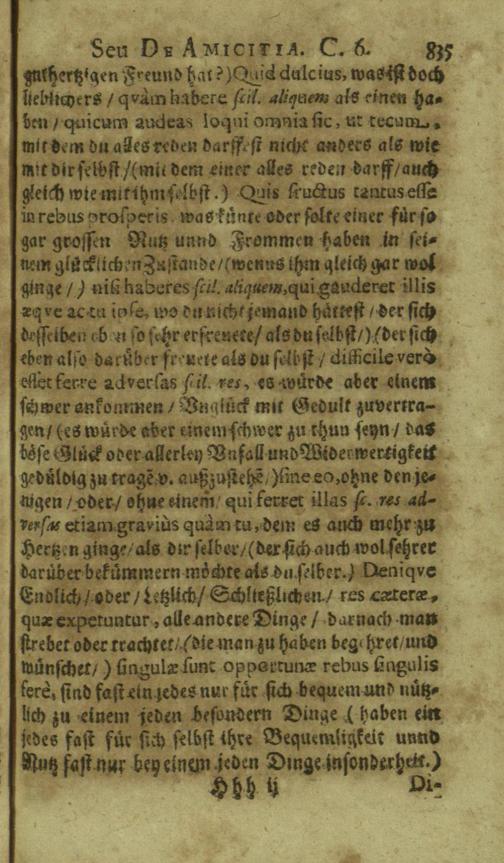 Seu DE AMICITIA. C. 6. 835
guthertzigen Freund hat?) Quid dulcius, was ist doch
lieblichers / quàm habere scil. aliquem als einen ha-
ben / quicum audeas loqui omnia sic, ut tecum,
mit dem du alles reden darffest nicht anders als wie
mit dir selbst / (mit dem einer alles reden darff / auch
gleich wie mit ihm selbst.) Quis fructus tantus esse
in rebus prosperis, was künte oder solte einer für so
gar grossen Nutz unnd Frommen haben in sei-
nem glücklichen Zustande / (wenns ihm gleich gar wol
ginge /) nisi haberes scil. aliquem, qui gauderet illis
æqve ac tu ipse, wo du nicht jemand hättest / der sich
desselben eben so sehr erfreuete / als du selbst /) (der sich
eben also darüber freuete als du selbst / difficile verò
esset ferre adversas scil. res, es würde aber einem
schwer ankommen / Unglück mit Gedult zuvertra-
gen / (es würde aber einem schwer zu thun seyn / das
böse Glück oder allerley Unfall und Widerwertigkeit
gedüldig zu tragē v. außzustehē /) sine eo, ohne den je-
nigen / oder / ohne einem / qui ferret illas sc. res ad-
versas etiam graviùs quàm tu, dem es auch mehr zu
Hertzen ginge / als dir selber / (der sich auch wol sehrer
darüber bekümmern möchte als du selber.) Deniqve
Endlich / oder / Letzlich / Schließlichen / res cæteræ,
quæ expetuntur, alle andere Dinge / darnach man
strebet oder trachtet / (die man zu haben begehret / und
wünschet /) singulæ sunt opportunæ rebus singulis
ferè, sind fast ein jedes nur für sich bequem und nütz-
lich zu einem jeden besondern Dinge (haben ein
jedes fast für sich selbst ihre Bequemligkeit unnd
Nutz fast nur bey einem jeden Dinge insonderheit.)
Hhh ij Di-